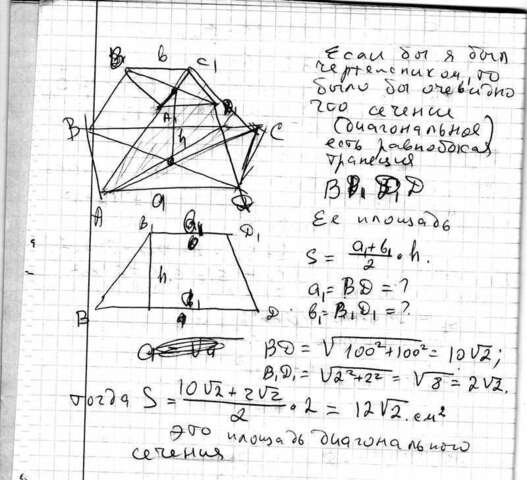 Если бы я был
чертежником, то
было бы очевидно
что сечение
(диагональное)
есть равнобокая
трапеция
B B₁ D₁ D
Ее площадь
S = (a₁+b₁)/2 · h.
a₁ = BD = ?
b₁ = B₁D₁ = ?
b
C₁
A₁
D₁
B
h
C
A
a
D
B₁
D₁
h
B
D
BD = √(100²+100²) = 10√2;
B₁D₁ = √(2²+2²) = √8 = 2√2.
тогда S = (10√2 + 2√2)/2 · 2 = 12√2 см²
это площадь диагонального
сечения